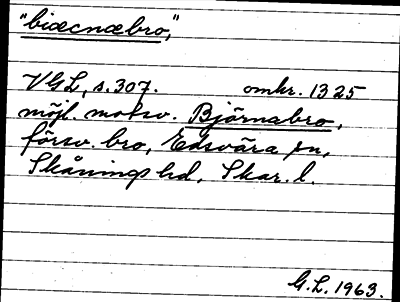 "biæcnæbro,"
VGL, s. 307. omkr. 1325
möjl. motsv. Björnabro,
försv. bro, Edsvära sn,
Skånings hd, Skar. l.
G.L. 1963.